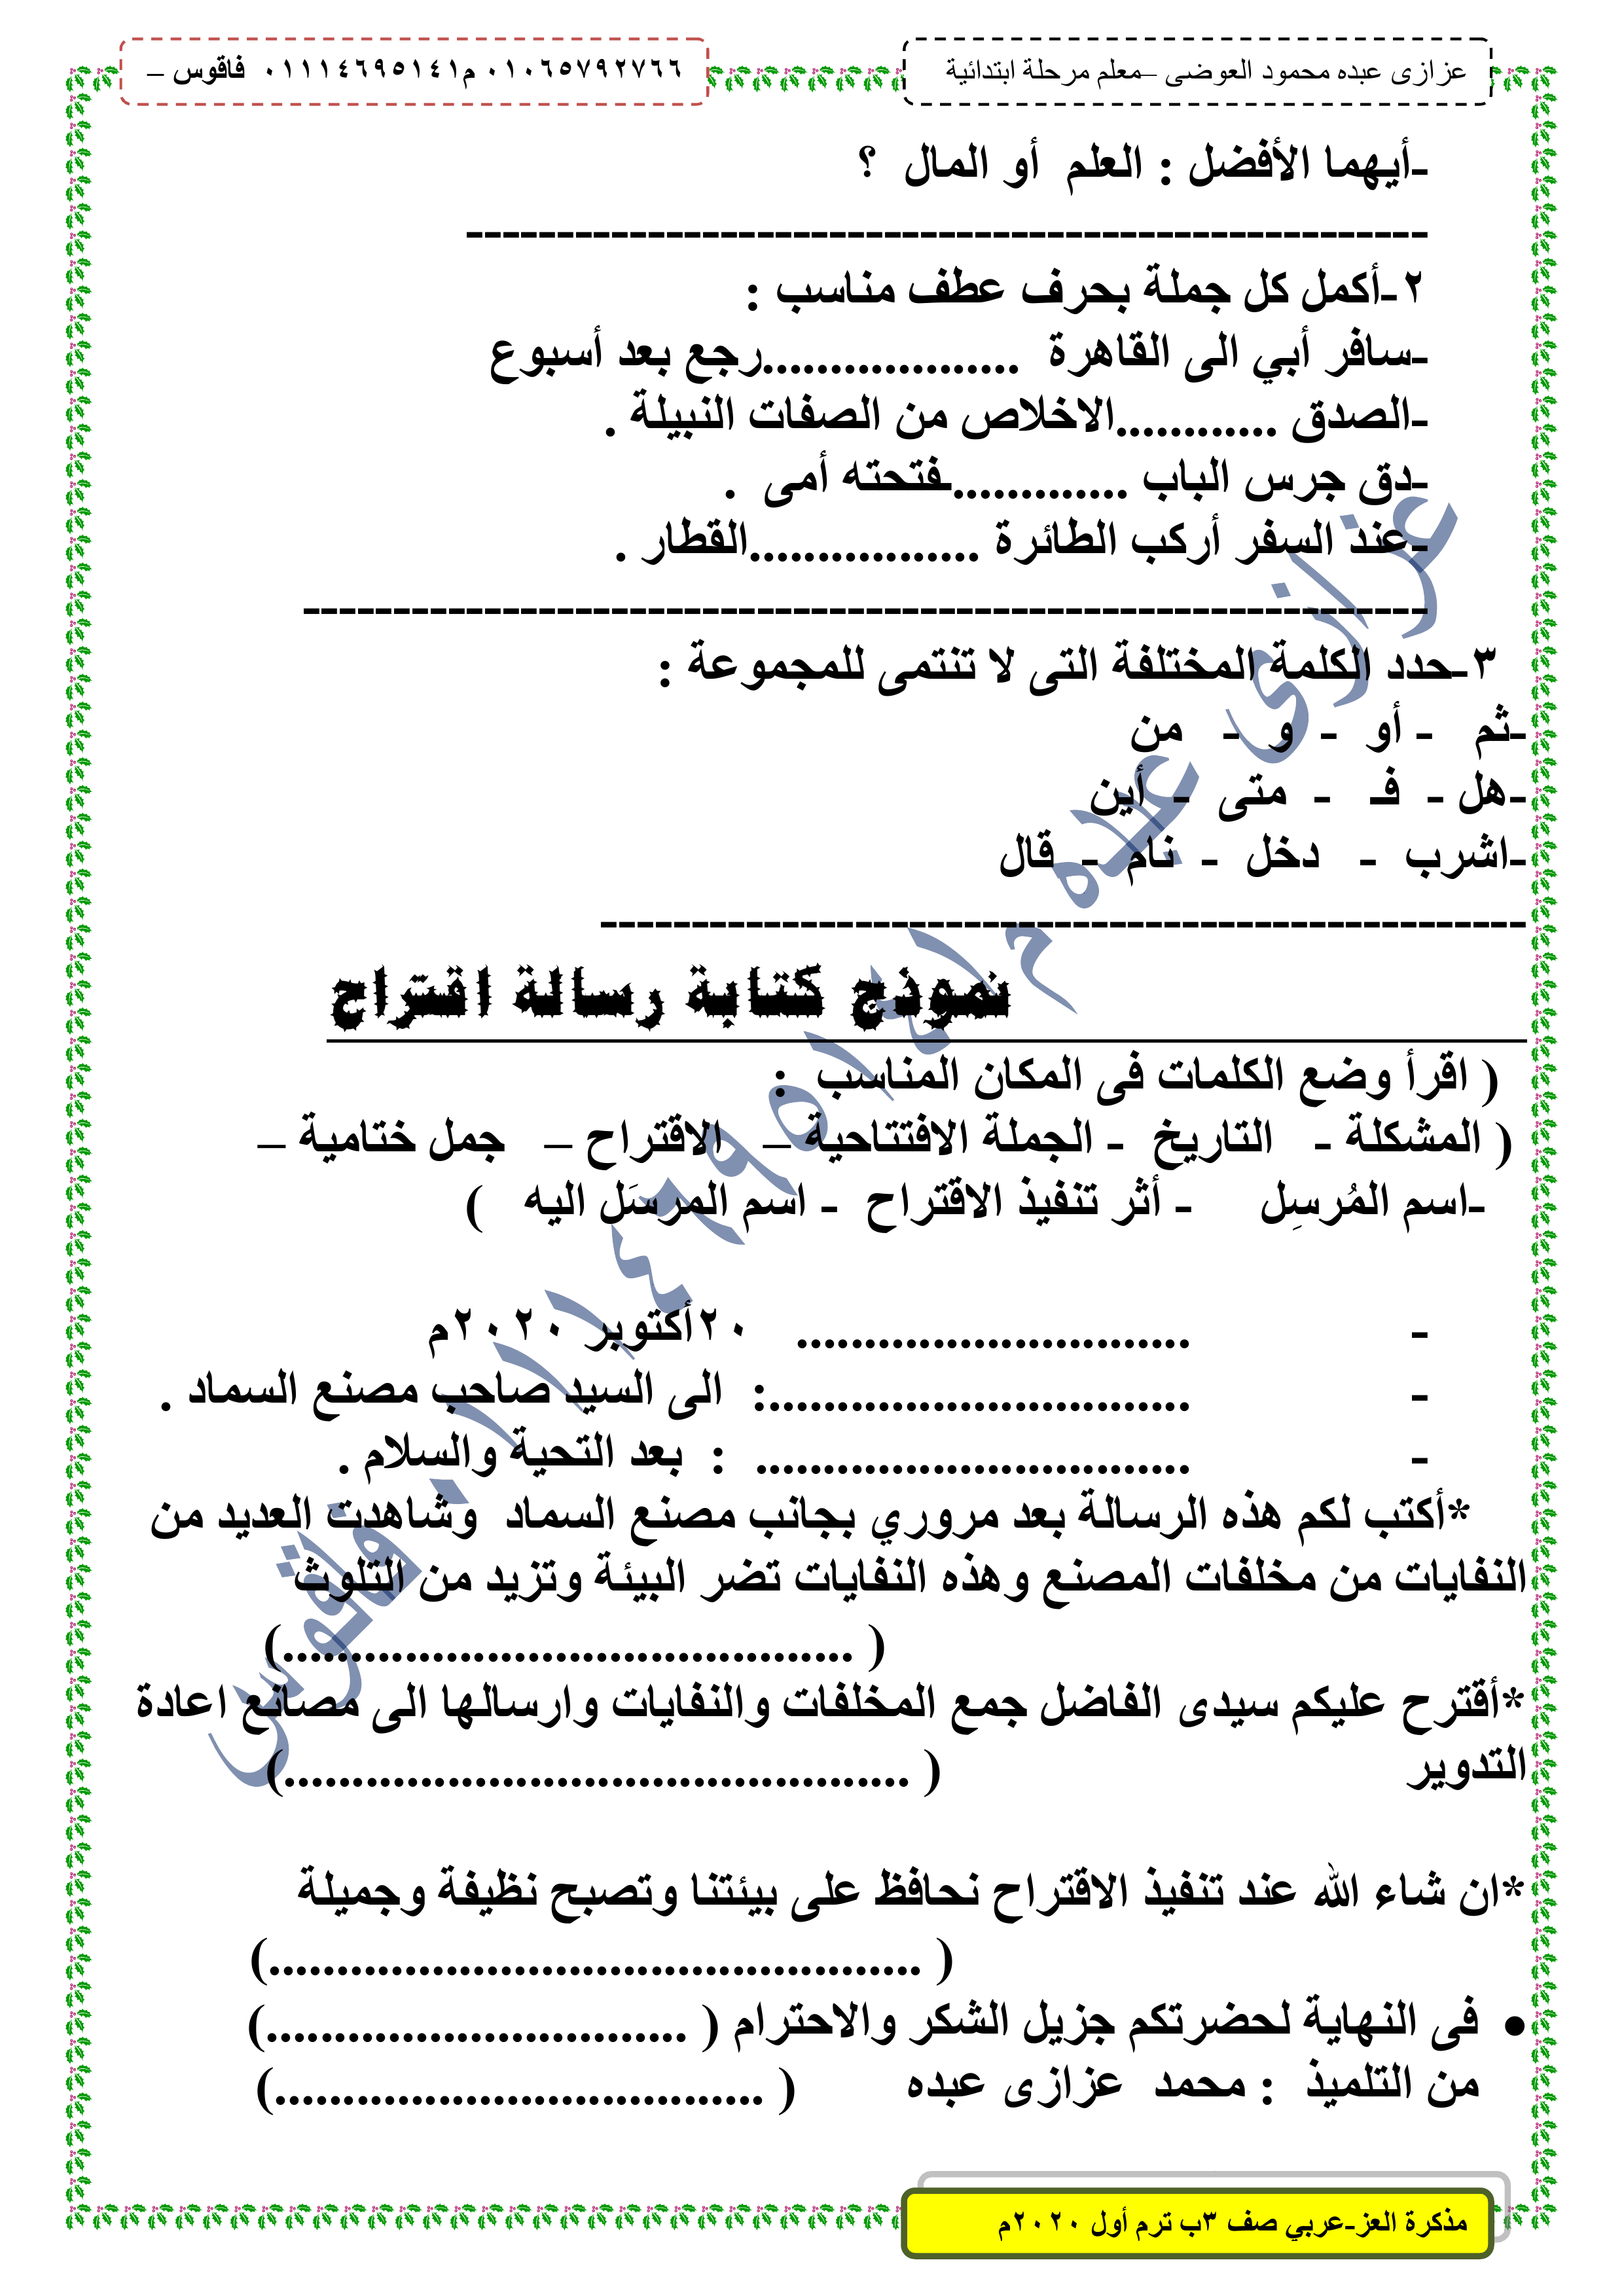 عزازى عبده محمود العوضى –معلم مرحلة ابتدائية
٠١٠٦٥٧٩٢٧٦٦ م٠١١١٤٦٩٥١٤١ فاقوس –
-أيهما الأفضل : العلم أو المال ؟
-----------------------------------------------------
٢-أكمل كل جملة بحرف عطف مناسب :
-سافر أبي الى القاهرة ...................رجع بعد أسبوع
-الصدق ............الاخلاص من الصفات النبيلة .
-دق جرس الباب .............ـفتحته أمى .
-عند السفر أركب الطائرة .................القطار .
--------------------------------------------------------------
٣-حدد الكلمة المختلفة التى لا تنتمى للمجموعة :
-ثم - أو - و - من
-هل - فـ - متى - أين
-اشرب - دخل - نام - قال
---------------------------------------------------
نموذج كتابة رسالة اقتراح
( اقرأ وضع الكلمات فى المكان المناسب :
( المشكلة - التاريخ - الجملة الافتتاحية – الاقتراح – جمل ختامية –
-اسم المُرسِل - أثر تنفيذ الاقتراح - اسم المرسَل اليه )
- ............................. ٢٠أكتوبر ٢٠٢٠م
- ...............................: الى السيد صاحب مصنع السماد .
- ................................ : بعد التحية والسلام .
*أكتب لكم هذه الرسالة بعد مروري بجانب مصنع السماد وشاهدت العديد من
النفايات من مخلفات المصنع وهذه النفايات تضر البيئة وتزيد من التلوث
( ..........................................)
*أقترح عليكم سيدى الفاضل جمع المخلفات والنفايات وارسالها الى مصانع اعادة
التدوير ( ..............................................)
*ان شاء الله عند تنفيذ الاقتراح نحافظ على بيئتنا وتصبح نظيفة وجميلة
( ................................................)
• فى النهاية لحضرتكم جزيل الشكر والاحترام ( ...............................)
من التلميذ : محمد عزازى عبده ( ....................................)
عزازى عبده م٠١١١٤٦٩٥١٤١ فاقوس
مذكرة العز-عربي صف ٣ب ترم أول ٢٠٢٠م